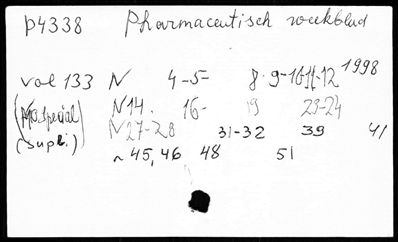 p4338 Pharmaceutisch weekblad
vol 133 N 4-5- 8. 9-10-11-12 1998
(special) N14. 16- 19 23-24
(supl.) N27-28 31-32 39 41
~45, 46 48 51